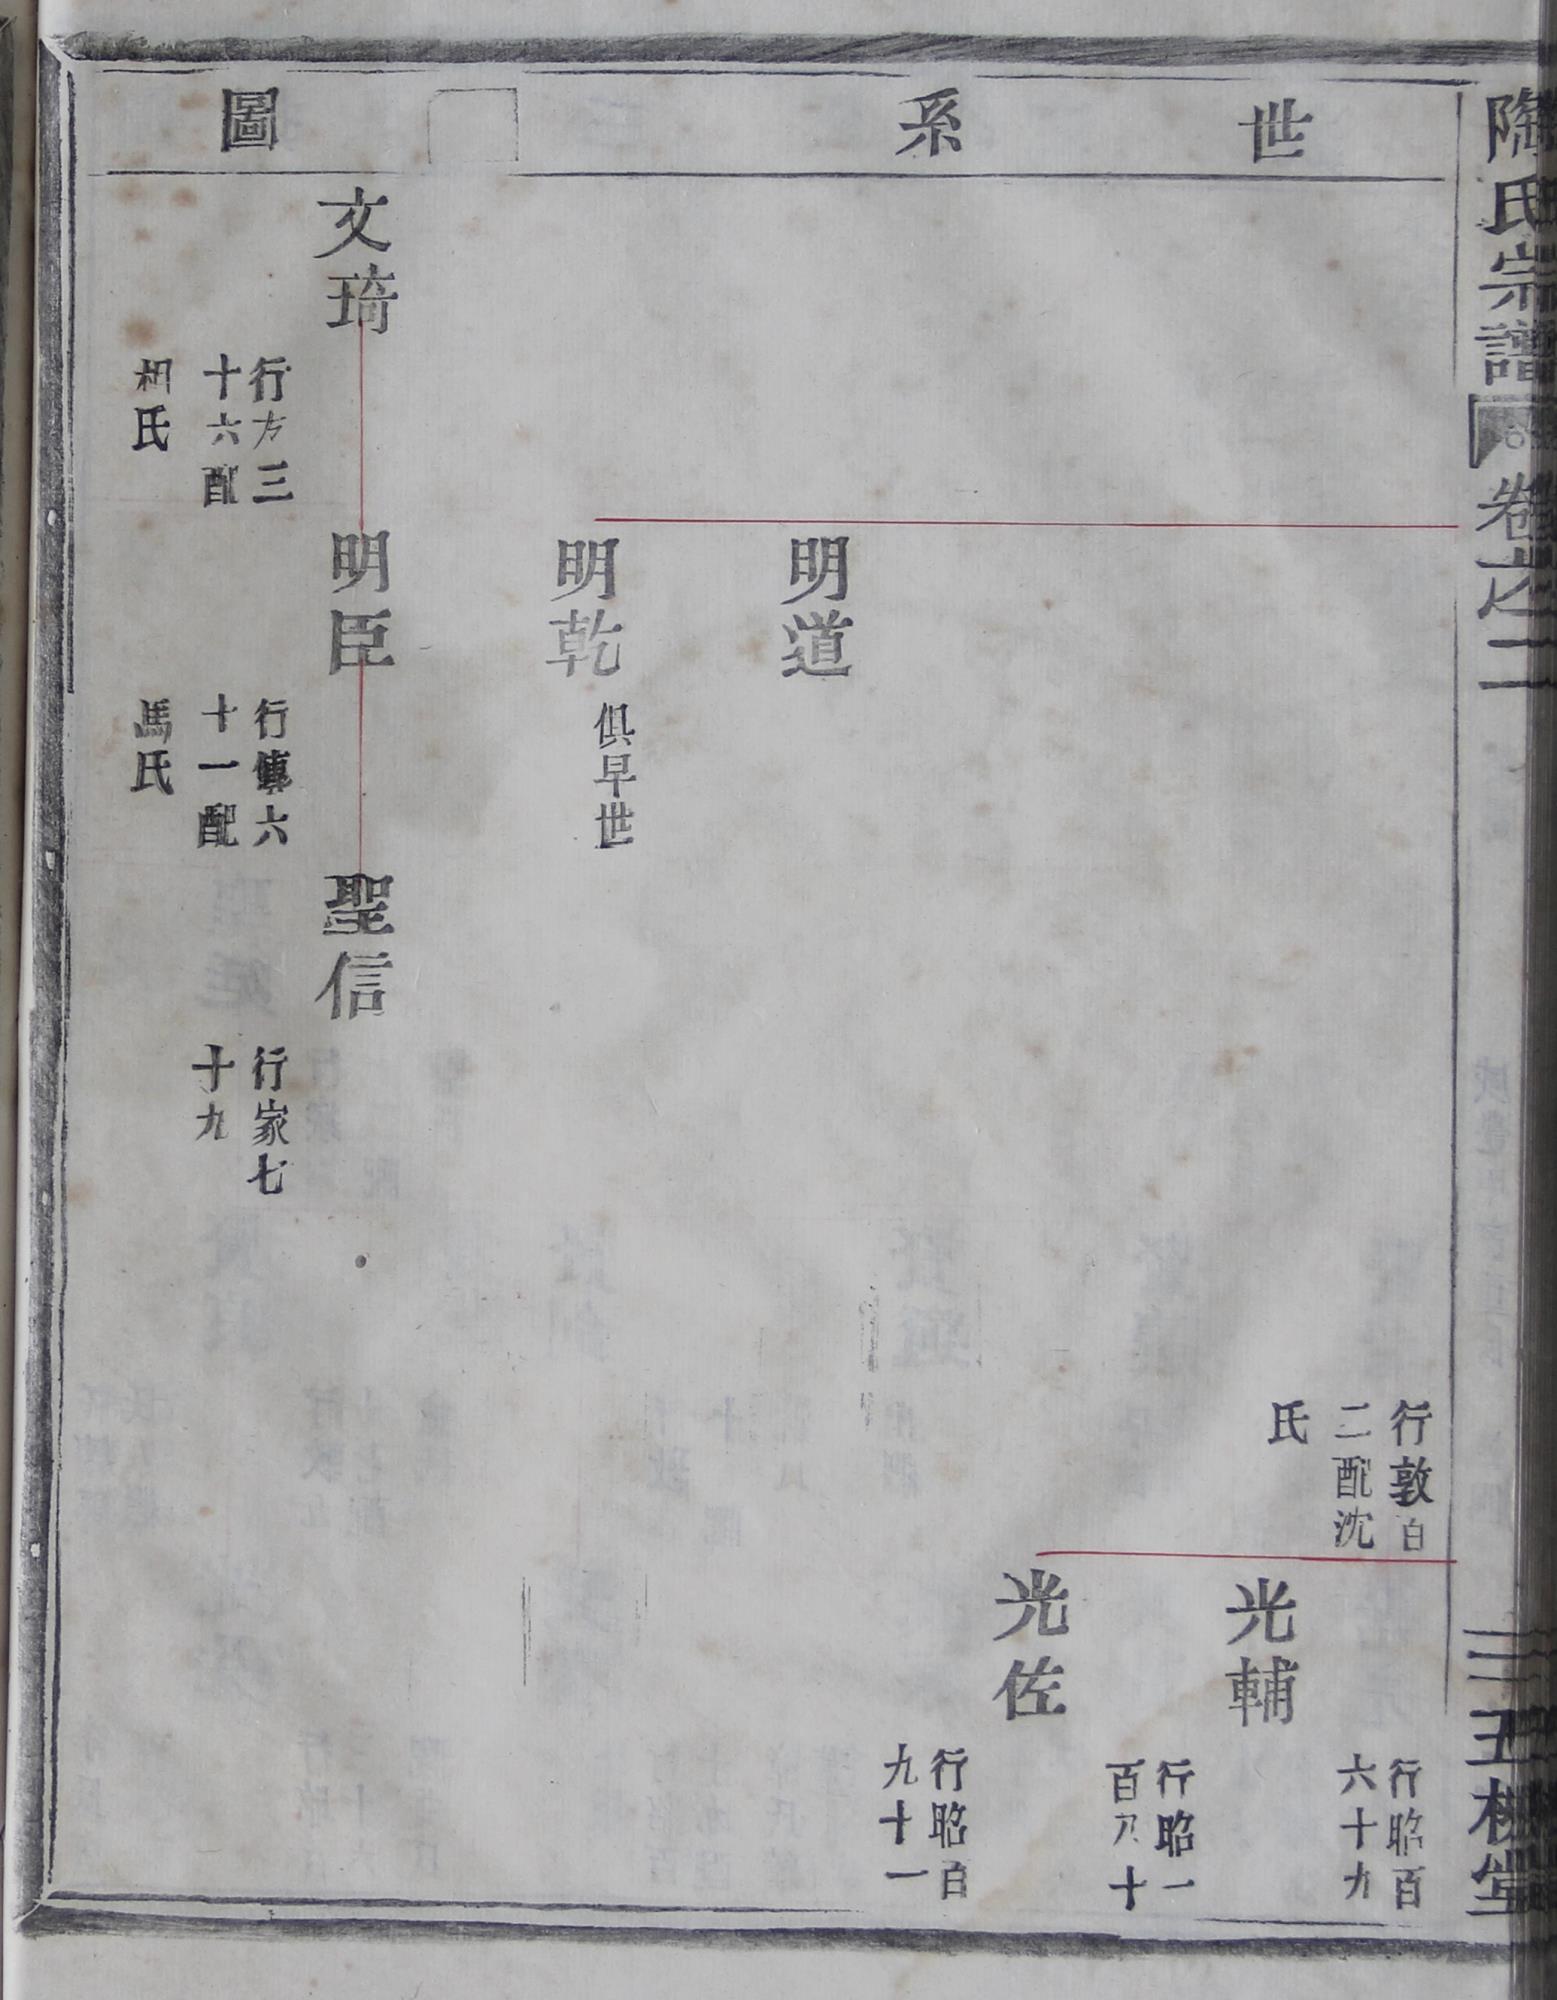 陶氏宗譜
卷之二
三
五柳堂
世系圖
行敦百
二配沈
氏
行昭百
六十九
光輔
行昭一
百八十
光佐
行昭百
九十一
明道
明乾
俱早世
文琦
行方三
十六配
柯氏
明臣
行傳六
十一配
馬氏
聖信
行家七
十九